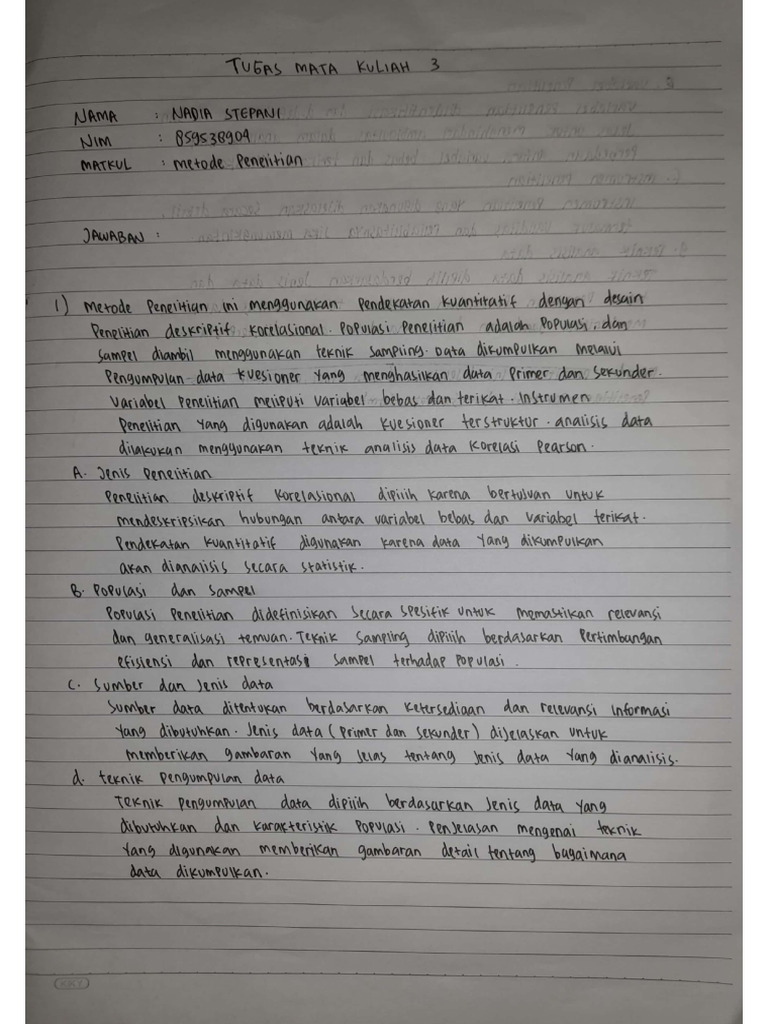 TUGAS MATA KULIAH 3
NAMA : NADIA STEPANI
NIM : 859538909
MATKUL : Metode Penelitian
JAWABAN :
1) Metode Penelitian ini menggunakan Pendekatan kuantitatif dengan desain
Penelitian deskriptif korelasional. Populasi Penelitian adalah Populasi, dan
sampel diambil menggunakan teknik sampling. Data dikumpulkan melalui
Pengumpulan data kuesioner yang menghasilkan data Primer dan sekunder.
Variabel Penelitian meliputi variabel bebas dan terikat. Instrumen
Penelitian yang digunakan adalah kuesioner terstruktur. analisis data
dilakukan menggunakan teknik analisis data korelasi Pearson.
A. Jenis Penelitian
Penelitian deskriptif korelasional dipilih karena bertujuan untuk
mendeskripsikan hubungan antara variabel bebas dan variabel terikat.
Pendekatan kuantitatif digunakan karena data yang dikumpulkan
akan dianalisis secara statistik.
B. Populasi dan sampel
Populasi Penelitian didefinisikan secara spesifik untuk memastikan relevansi
dan generalisasi temuan. Teknik sampling dipilih berdasarkan Pertimbangan
efisiensi dan representasi sampel terhadap Populasi.
C. Sumber dan Jenis data
Sumber data ditentukan berdasarkan ketersediaan dan relevansi informasi
yang dibutuhkan. Jenis data (Primer dan sekunder) dijelaskan untuk
memberikan gambaran yang jelas tentang jenis data yang dianalisis.
d. teknik pengumpulan data
Teknik Pengumpulan data dipilih berdasarkan jenis data yang
dibutuhkan dan karakteristik populasi. Penjelasan mengenai teknik
yang digunakan memberikan gambaran detail tentang bagaimana
data dikumpulkan.